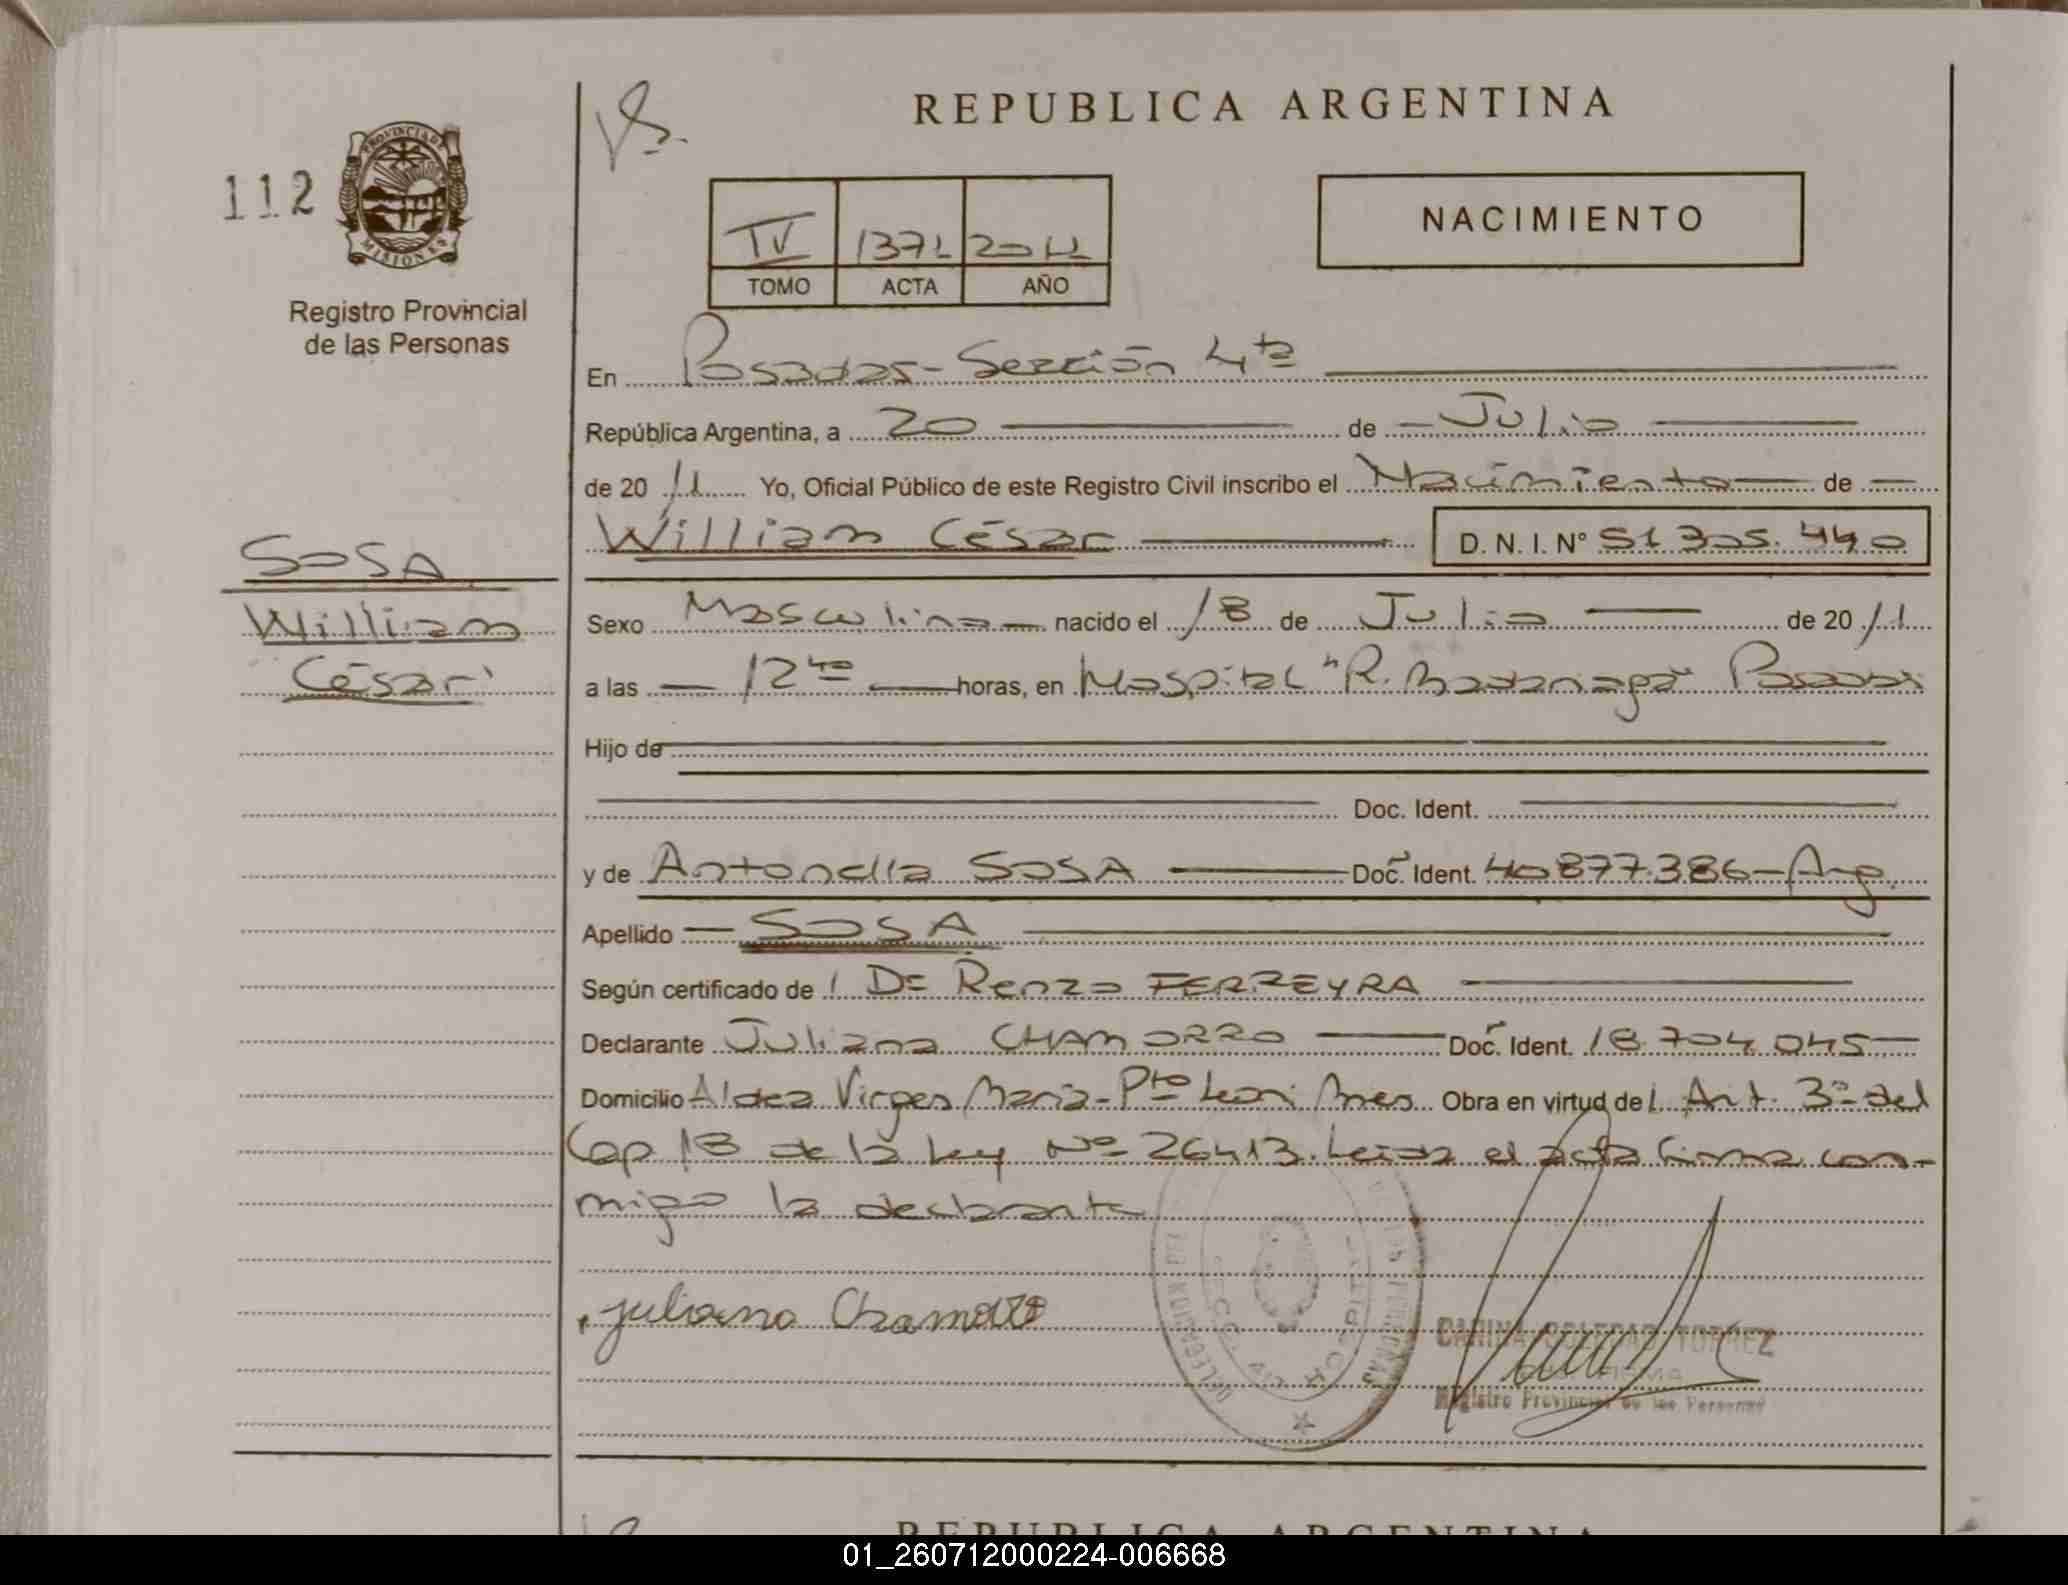 REPUBLICA ARGENTINA
112
PROVINCIA DE
MISIONES
Registro Provincial
de las Personas
NACIMIENTO
IV 1371 2011
TOMO ACTA AÑO
En Posadas - Sección 4ta
República Argentina, a 20 de Julio
de 2011 Yo, Oficial Público de este Registro Civil inscribo el Nacimiento de
William César D. N. I. N° 51305.440
SOSA
William
César
Sexo Masculino nacido el 18 de Julio de 2011
a las 12 40 horas, en Hospital "R. Madariaga" Posadas
Hijo de
Doc. Ident.
y de Antonella SOSA Doc. Ident. 40877.386 - Arg.
Apellido SOSA
Según certificado de l Dr Renzo FERREYRA
Declarante Juliana CHAMORRO Doc. Ident. 18.704.045
Domicilio Aldea Virgen María - Pto Leoni Mnes Obra en virtud del Art. 3° del
Cap 13 de la Ley N° 26413. Leída el acta firma con-
migo la declarante
juliana Chamorro
CARINA SOLEDAD TORREZ
FIRMA
Registro Provincial de las Personas
REPUBLICA ARGENTINA
01_260712000224-006668